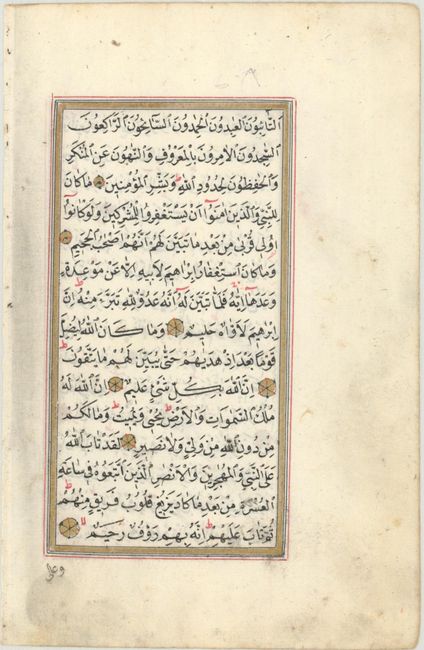 التائبون العبدون الحمدون السائحون الراكعون
السجدون الامرون بالمعروف والناهون عن المنكر
والحفظون لحدود الله وبشر المؤمنين ما كان
للنبي والذين امنوا ان يستغفروا للمشركين ولو كانوا
اولى قربى من بعد ما تبين لهم انهم اصحب الجحيم
وما كان استغفار ابراهيم لابيه الا عن موعدة
وعدها اياه فلما تبين له انه عدو لله تبرا منه ان
ابرهيم لاواه حليم وما كان الله ليضل
قوما بعد اذ هديهم حتى يبين لهم ما يتقون
ان الله بكل شئ عليم ان الله له
ملك السموات والارض يحيى ويميت وما لكم
من دون الله من ولي ولا نصير لقد تاب الله
على النبي والمهجرين والانصار الذين اتبعوه في ساعة
العسرة من بعد ما كاد يزيغ قلوب فريق منهم
ثم تاب عليهم انه بهم رؤف رحيم
وعلى